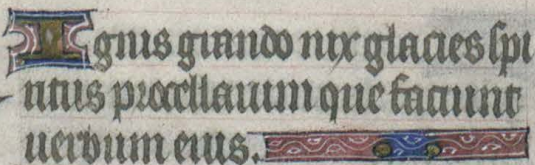 Ignis grando nix glacies spi
ritus procellarum que faciunt
uerbum eius.